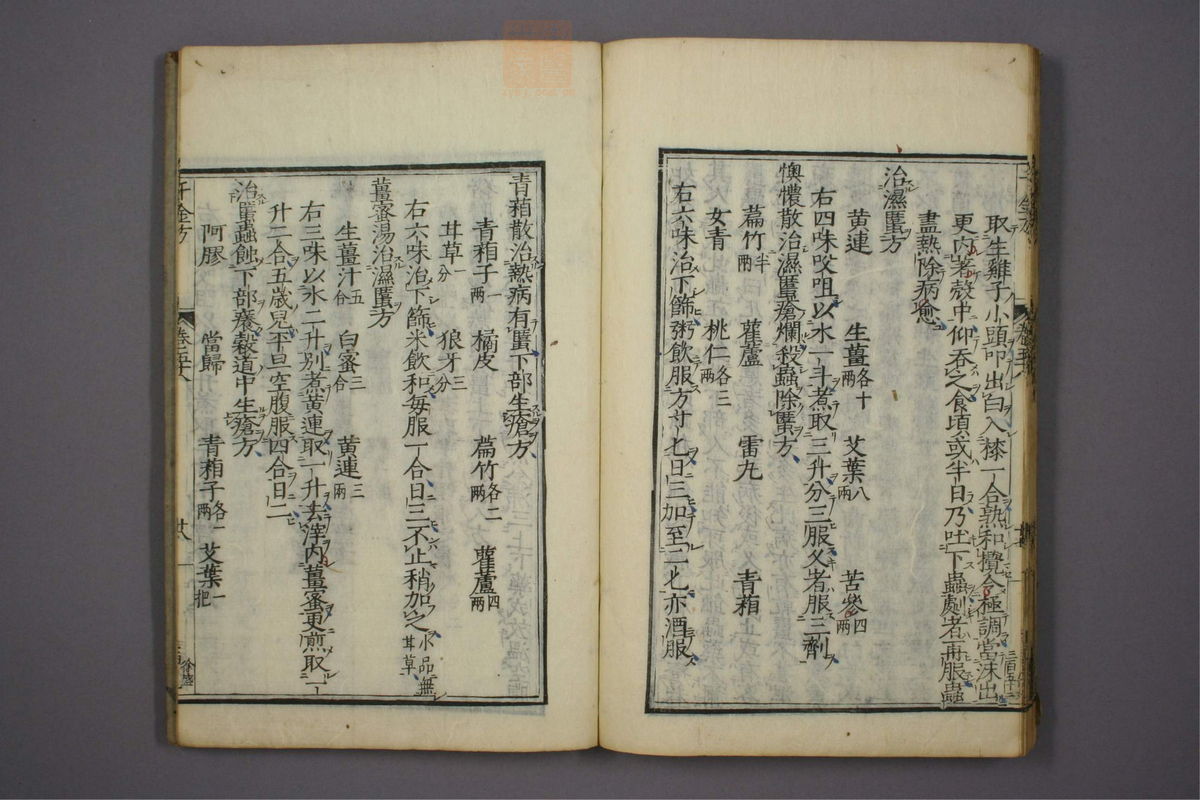 取生雞子小頭叩出白入𣾰一合熟和攪令極調當沫出
更內著殼中仰吞之食頃或半日乃吐下蟲劇者再服蟲
盡熱除病愈
治濕䘌方
黃連 生薑各十兩 艾葉八兩 苦參四兩
右四味㕮咀以水一斗煮取三升分三服久者服三劑
懊憹散治濕䘌瘡爛殺蟲除䘌方
萹竹半兩 雚蘆 雷丸 青葙
女青 桃仁各三兩
右六味治下篩粥飲服方寸匕日三加至二匕亦酒服
青葙散治熱病有䘌下部生瘡方
青葙子一兩 橘皮 萹竹各二兩 雚蘆四兩
甘草一分 狼牙三分
右六味治下篩米飲和每服一合日三不止稍加之小品無甘草
薑蜜湯治濕䘌方
生薑汁五合 白蜜三合 黃連三兩
右三味以水二升別煮黃連取一升去滓內薑蜜更煎取一
升二合五歲兒平旦空腹服四合日二
治䘌蟲蝕下部癢穀道中生瘡方
阿膠 當歸 青葙子各一兩 艾葉一把
千金方
卷五十八
廿八
徐盛